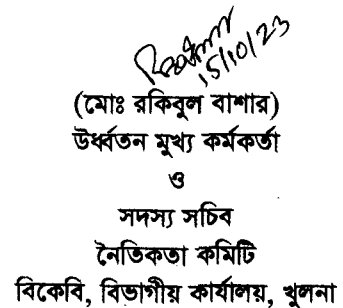 15/10/23
(মোঃ রকিবুল বাশার)
উর্ধ্বতন মুখ্য কর্মকর্তা
ও
সদস্য সচিব
নৈতিকতা কমিটি
বিকেবি, বিভাগীয় কার্যালয়, খুলনা